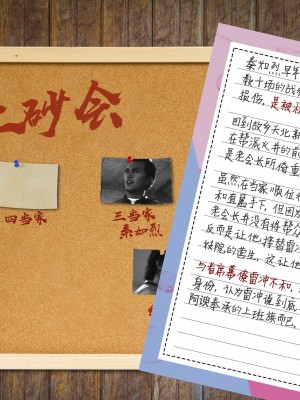 砂会
四当家
三当家
秦如烈
秦如烈早年
数十场的战
损伤,是被
回到故乡天北
在帮派火并的前
是老会长所倚重
虽然在当家顺位
和直属手下,但因
老会长并没有将帮
反而是让他,接替雷冲
铁院的营生,这让他
与首席幕僚雷冲不和,
身份,认为雷冲说到底
阿谀奉承的上班族而已